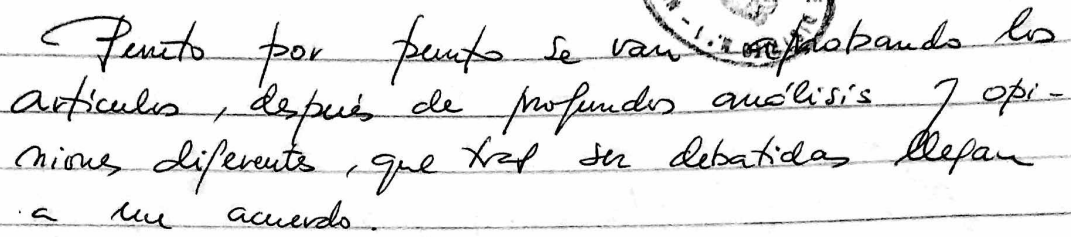 Punto por punto se van aprobando los
artículos, después de profundos análisis y opi-
niones diferente, que tras ser debatidas llegan
a un acuerdo.